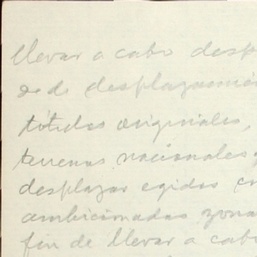 llevar a cabo desp
desplazamien
originales,
terrenos nacionales y
desplazar egidos en
ambicionadas zona
fin de llevar a cabo